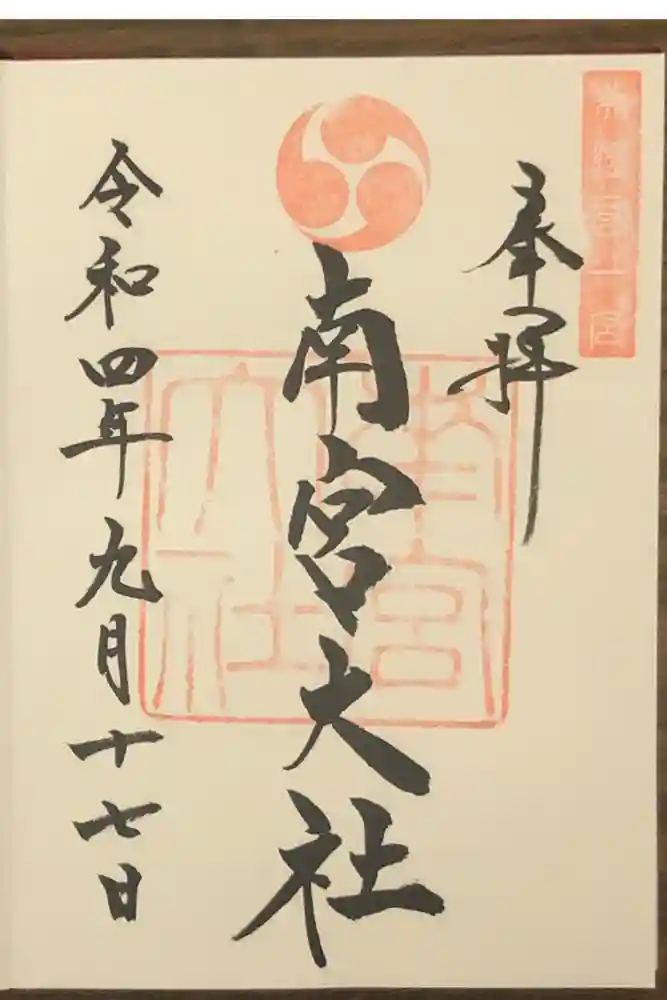 一宮
奉拝
南宮大社
南宮
大社
令和四年九月十七日